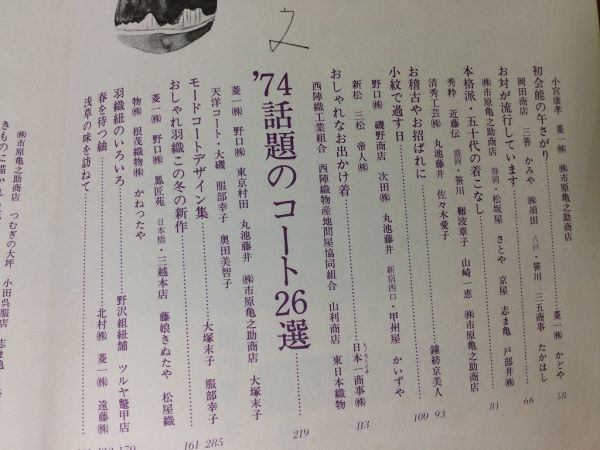 2
小宮康孝 菱一㈱ ㈱市原亀之助商店
初会能の午さがり 菱一㈱ かどや 58
岡田商店 三喜 かみや ㈱須田 八戸・笹川 三五商事 たかはし
お対が流行しています 66
㈱市原亀之助商店 静岡・松坂屋 さとや 京屋 志ま亀 戸部井㈱
本格派・五十代の着こなし 81
秀粋 近藤伝 盛岡・笹川 難波章子 山崎一恵 ㈱市原亀之助商店
お稽古やお招ばれに 鐘紡京美人 93
清秀工芸㈱ 丸池藤井 佐々木愛子
小紋で過す日 100
野口㈱ 磯野商店 次田㈱ 丸池藤井 新宿西口・甲州屋 かいずや
おしゃれなお出かけ着 日本一商事㈱ 113
新松 三松 帝人㈱
西陣織工業組合 西陣織物産地問屋協同組合 山利商店 東日本織物
'74話題のコート26選 219
菱一㈱ 野口㈱ 東京村田 丸池藤井 ㈱市原亀之助商店 大塚末子
天洋コート・大磯 服部幸子 奥田美智子
モードコートデザイン集 大塚末子 服部幸子 285
おしゃれ羽織この冬の新作 161
菱一㈱ 野口㈱ 鳳匠苑 日本橋・三越本店 藤娘きぬたや 松屋織
物㈱ 根茂織物㈱ かねつたや
羽織紐のいろいろ 野沢組紐舗 ツルヤ鼈甲店 170
春を待つ紬 北村㈱ 菱一㈱ 遠藤㈱
浅草の味を訪ねて
㈱市原亀之助商店 つむぎの大坪 小田呉服店 志ま亀
きものに描かれ